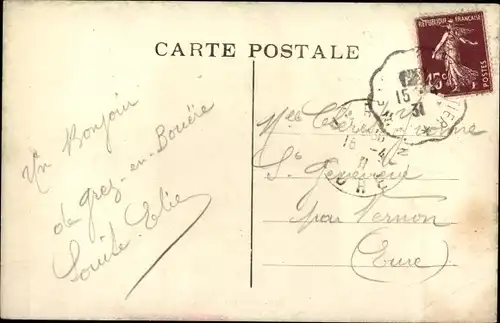 CARTE POSTALE
REPUBLIQUE FRANÇAISE
15c
POSTES
15
31
16 -4
31
EURE
Un Bonjour
de Grez-en-Bouère
Louise Elie
Mlle Thérèse Yvonne
Ste Geneviève
par Vernon
(Eure)